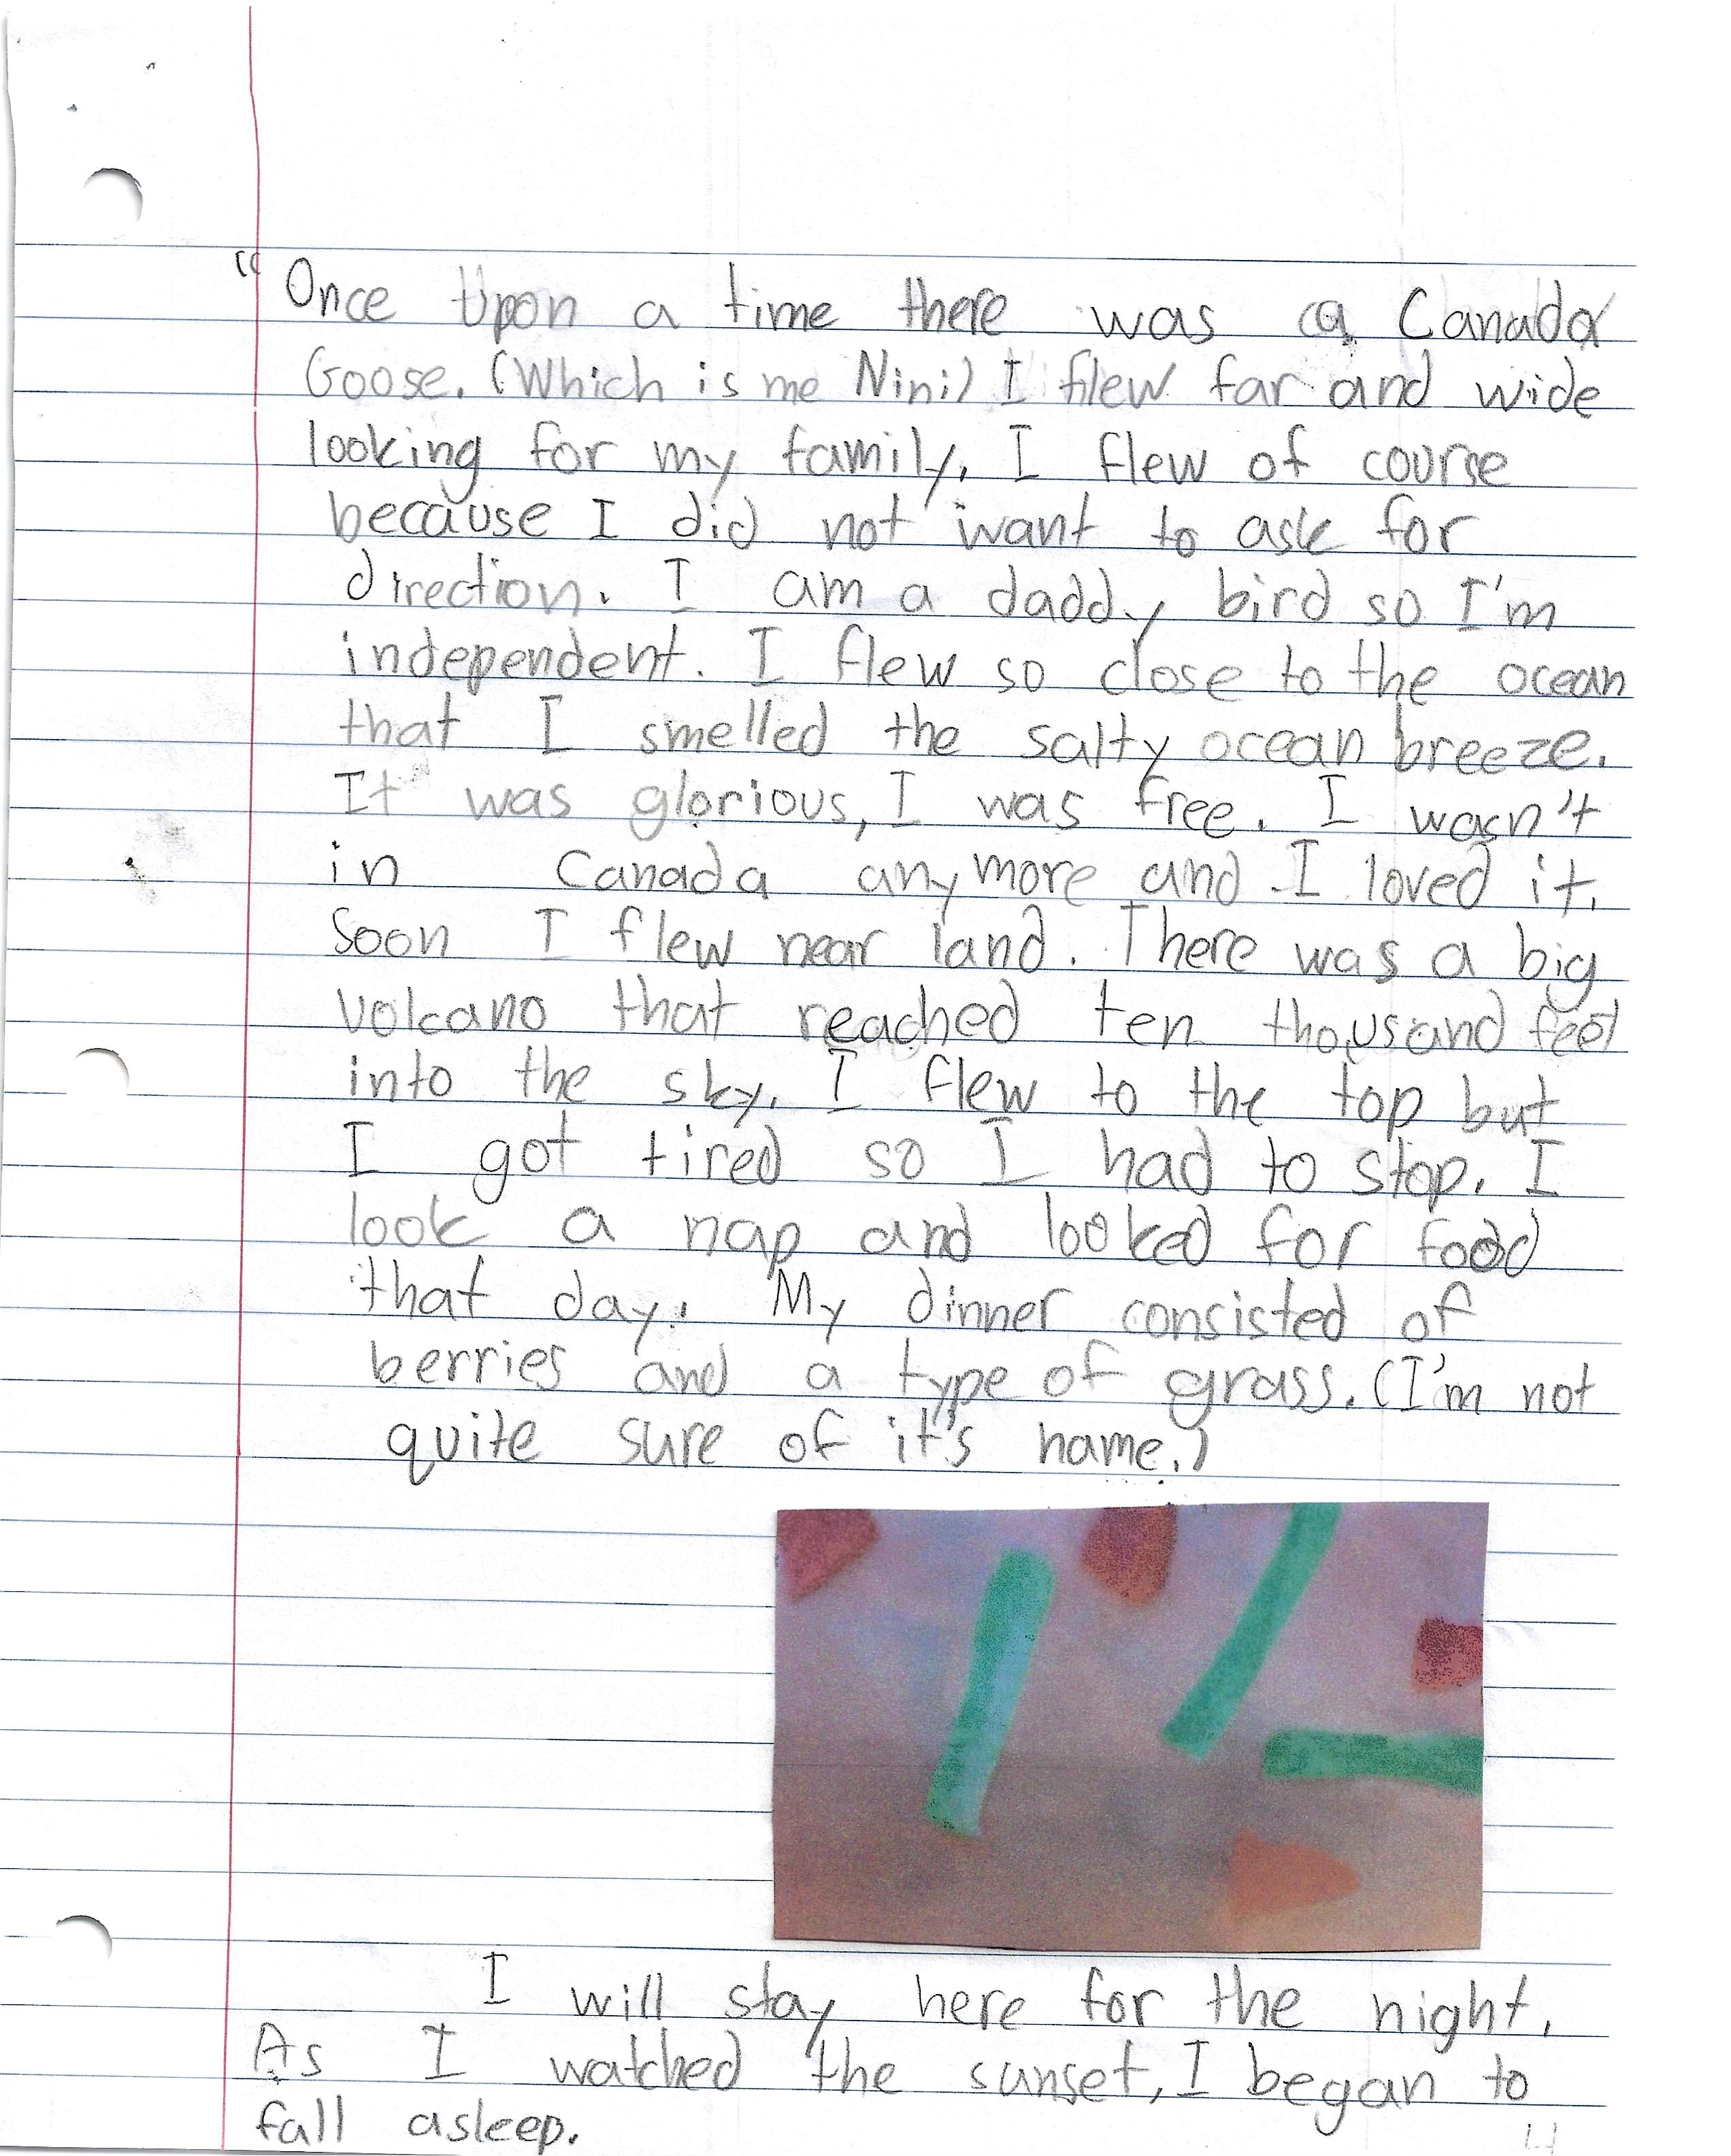 "Once Upon a time there was a Canada
Goose. (Which is me Nini) I flew far and wide
looking for my family. I flew of course
because I did not want to ask for
direction. I am a daddy bird so I'm
independent. I flew so close to the ocean
that I smelled the salty ocean breeze.
It was glorious, I was free. I wasn't
in Canada anymore and I loved it.
Soon I flew near land. There was a big
volcano that reached ten thousand feet
into the sky. I flew to the top but
I got tired so I had to stop. I
look a nap and looked for food
that day. My dinner consisted of
berries and a type of grass. (I'm not
quite sure of it's name.)
I will stay here for the night.
As I watched the sunset, I began to
fall asleep.
4